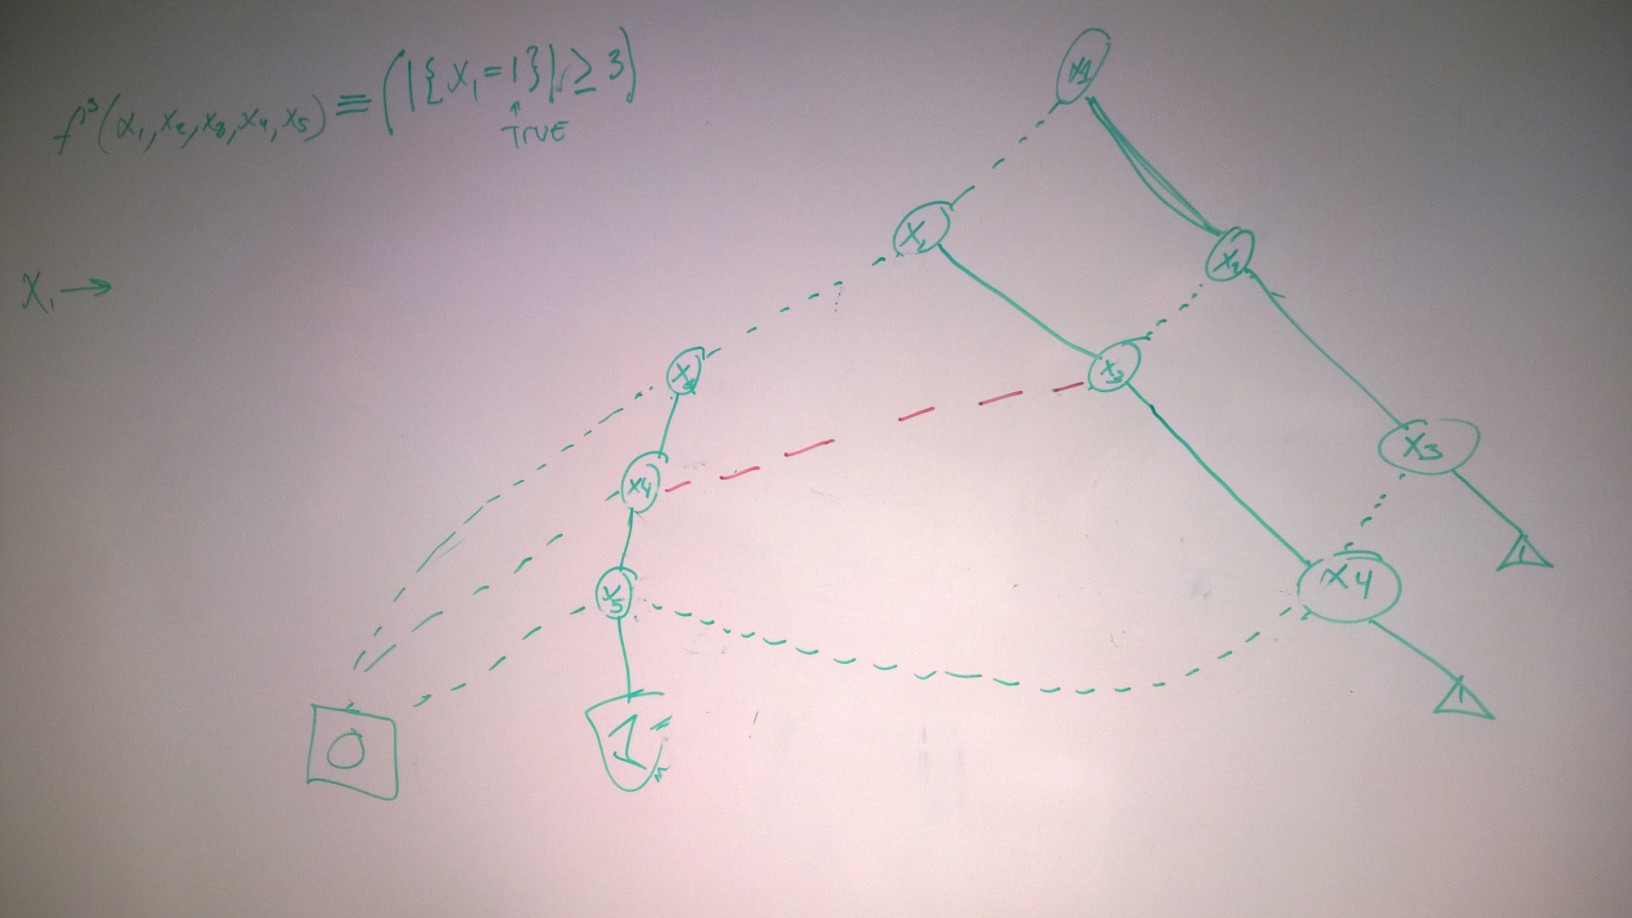 f³(x₁,x₂,x₃,x₄,x₅) ≡ (|{x₁=1}| ≥ 3)
↑
TRUE
X₁ →
X
X₂
X
X₃
X₃
X4
X4
X5
1
1
0
1